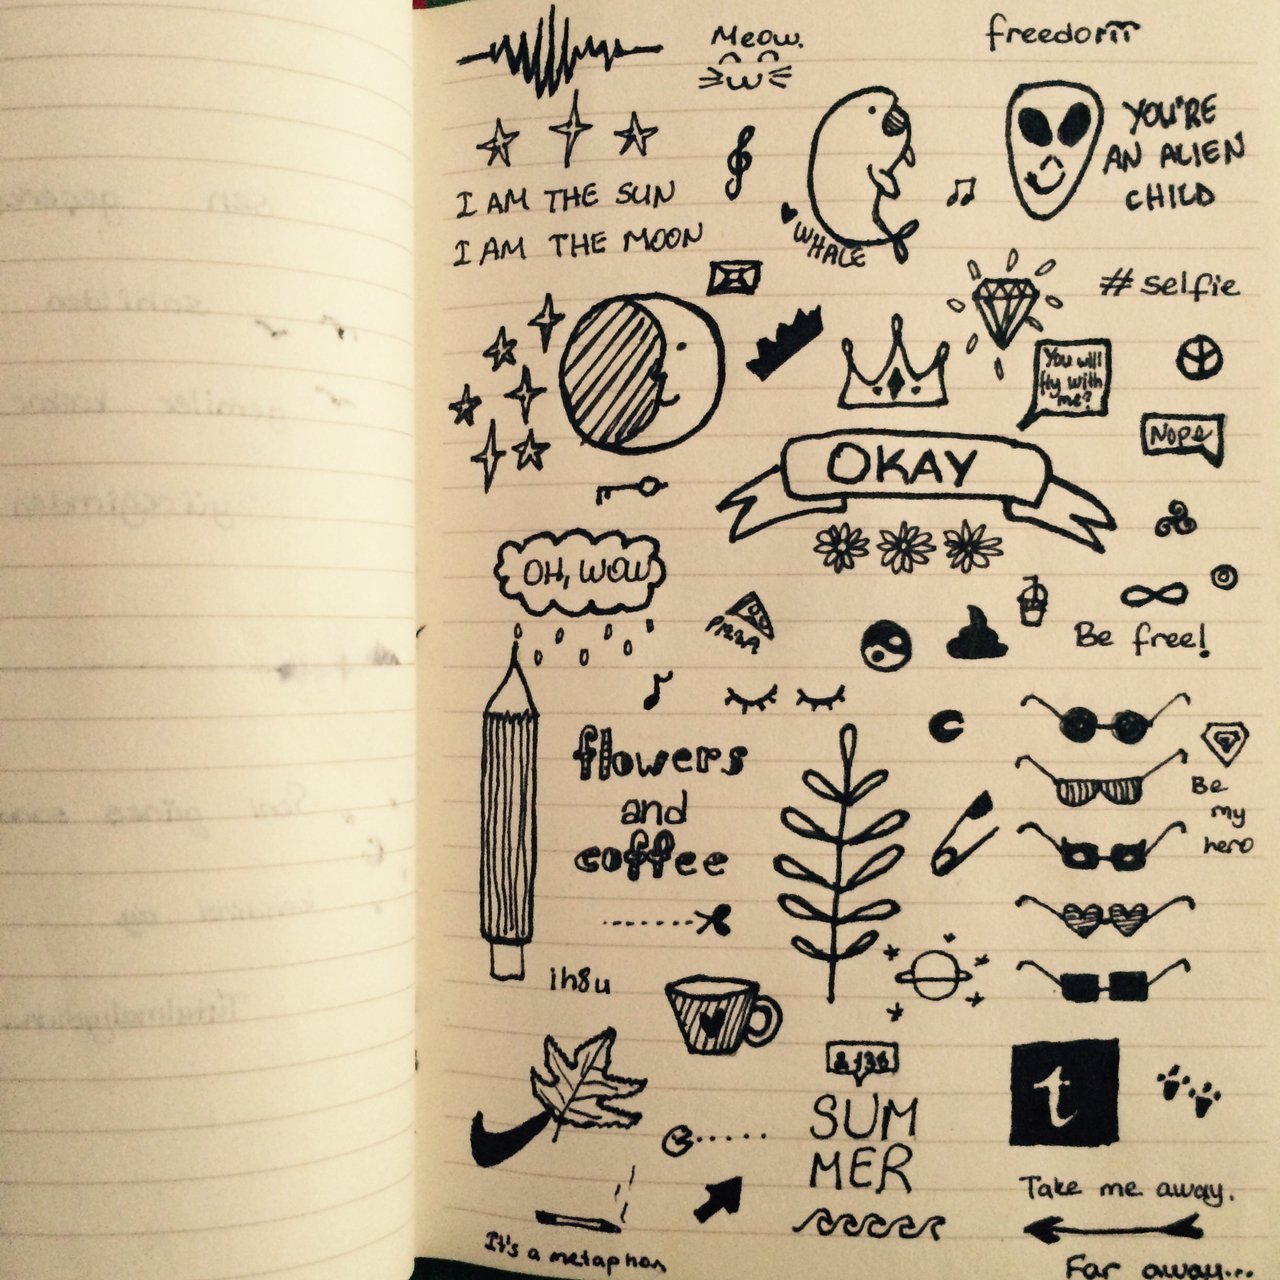 Meow.
freedom
YOU'RE
AN ALIEN
CHILD
I AM THE SUN
I AM THE MOON
WHALE
#selfie
You will
fly with
me?
Nope
OKAY
OH, WOW
PIZZA
Be free!
flowers
and
coffee
Be
my
hero
ih8u
SUM
MER
t
Take me away.
Far away...
It's a metaphor